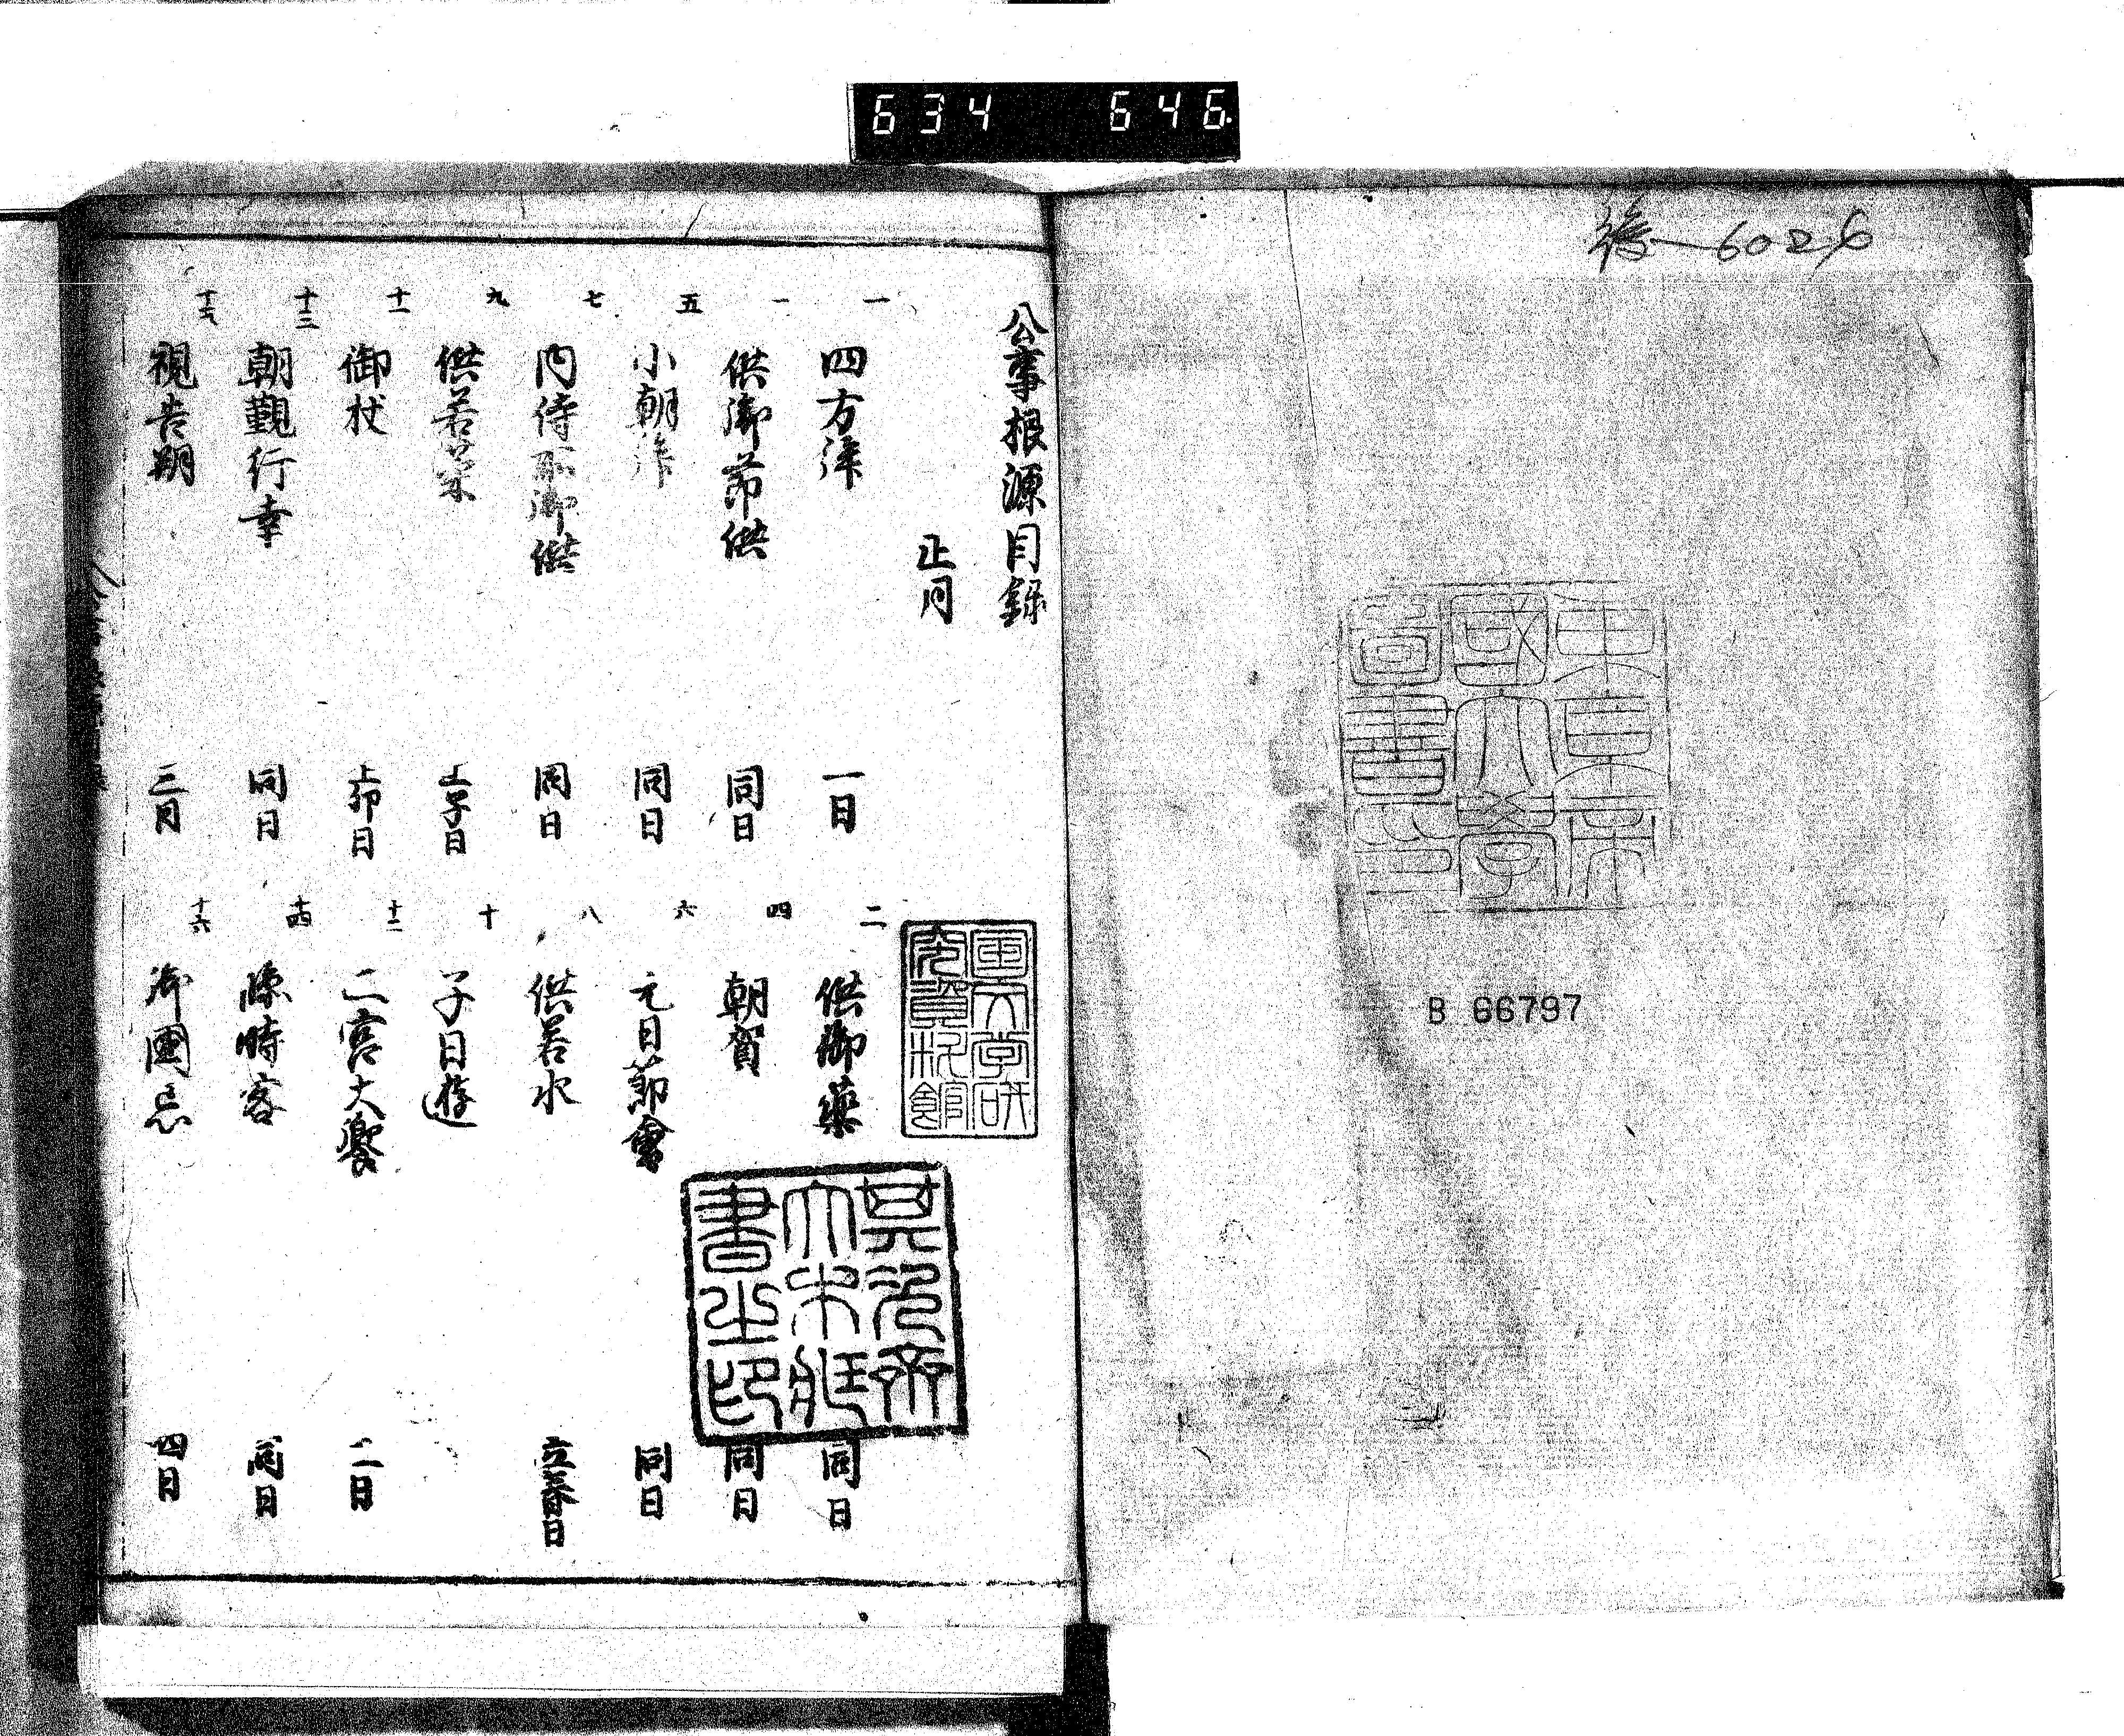 634 646.
6026
B 66797
公事根源目録
正月
一 四方拜 一日
二 供御藥 同日
供御節供 同日
四 朝賀 同日
五 小朝拜 同日
六 元日節會 同日
七 内侍所御供 同日
八 供若水 立春日
九 供若菜 上子日
十 子日遊
十一 御杖 上卯日
十二 二宮大饗 二日
十三 朝覲行幸 同日
十四 臨時客 同日
視告朔
十六 御國忌 四日
東京帝
國大學
圖書印
国文学研
究資料館
書之印